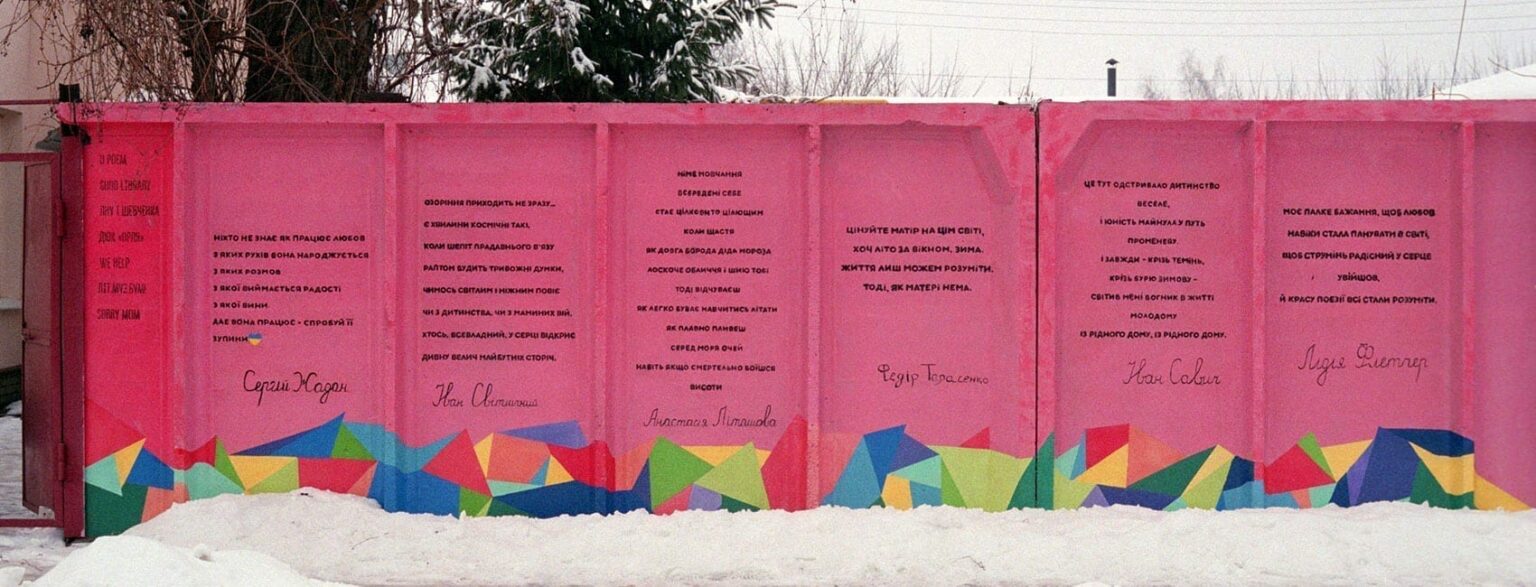 U POEM
GURU LIBRARY
ЛНУ Т. ШЕВЧЕНКА
WE HELP
ЛІТ.МУЗ.БУМ
SORRY MOM
НІХТО НЕ ЗНАЄ ЯК ПРАЦЮЄ ЛЮБОВ
З ЯКИХ РУХІВ ВОНА НАРОДЖУЄТЬСЯ
З ЯКИХ РОЗМОВ
З ЯКОЇ ВИЙМАЄТЬСЯ РАДОСТІ
З ЯКОЇ ВИНИ.
ДЛЕ ВОНА ПРАЦЮЄ - СПРОБУЙ ЇЇ
ЗУПИНИ
Сергій Жадан
ОЗОРІННЯ ПРИХОДИТЬ НЕ ЗРАЗУ...
Є ХВИЛИНИ КОСМІЧНІ ТАКІ,
КОЛИ ШЕПІТ ПРАДАВНЬОГО В'ЯЗУ
РАПТОМ БУДИТЬ ТРИВОЖНІ ДУМКИ,
ЧИМОСЬ СВІТЛИМ І НІЖНИМ ПОВІЄ
ЧИ З ДИТИНСТВА, ЧИ З МАМИНИХ ВІЙ,
ХТОСЬ, ВСЕВЛАДНИЙ, У СЕРЦІ ВІДКРИЄ
ДИВНУ ВЕЛИЧ МАЙБУТНІХ СТОРІЧ.
Іван Світличний
НІМЕ МОВЧАННЯ
ВСЕРЕДЕНІ СЕБЕ
СТАЄ ЦІЛКОВИТО ЦІЛЮЩИМ
КОЛИ ЩАСТЯ
ЯК ДОВГА БОРОДА ДІДА МОРОЗА
ЛОСКОЧЕ ОБЛИЧЧЯ І ШИЮ ТОБІ
ТОДІ ВІДЧУВАЄШ
ЯК ЛЕГКО БУВАЄ НАВЧИТИСЬ ЛІТАТИ
ЯК ПЛАВНО ПЛИВЕШ
СЕРЕД МОРЯ ОЧЕЙ
НАВІТЬ ЯКЩО СМЕРТЕЛЬНО БОЇШСЯ
ВИСОТИ
Анастасія Літашова
ЦІНУЙТЕ МАТІР НА ЦІМ СВІТІ,
ХОЧ ЛІТО ЗА ВІКНОМ, ЗИМА.
ЖИТТЯ ЛИШ МОЖЕМ РОЗУМІТИ.
ТОДІ, ЯК МАТЕРІ НЕМА.
Федір Тарасенко
ЦЕ ТУТ ОДСТРИБАЛО ДИТИНСТВО
ВЕСЕЛЕ,
І ЮНІСТЬ МАЙНУЛА У ПУТЬ
ПРОМЕНЕВУ.
І ЗАВЖДИ - КРІЗЬ ТЕМІНЬ,
КРІЗЬ БУРЮ ЗИМОВУ -
СВІТИВ МЕНІ ВОГНИК В ЖИТТІ
МОЛОДОМУ
ІЗ РІДНОГО ДОМУ, ІЗ РІДНОГО ДОМУ.
Іван Савич
МОЄ ПАЛКЕ БАЖАННЯ, ЩОБ ЛЮБОВ
НАВІКИ СТАЛА ПАНУВАТИ В СВІТІ,
ЩОБ СТРУМІНЬ РАДІСНИЙ У СЕРЦЕ
УВІЙШОВ,
Й КРАСУ ПОЕЗІЇ ВСІ СТАЛИ РОЗУМІТИ.
Лідія Флетчер